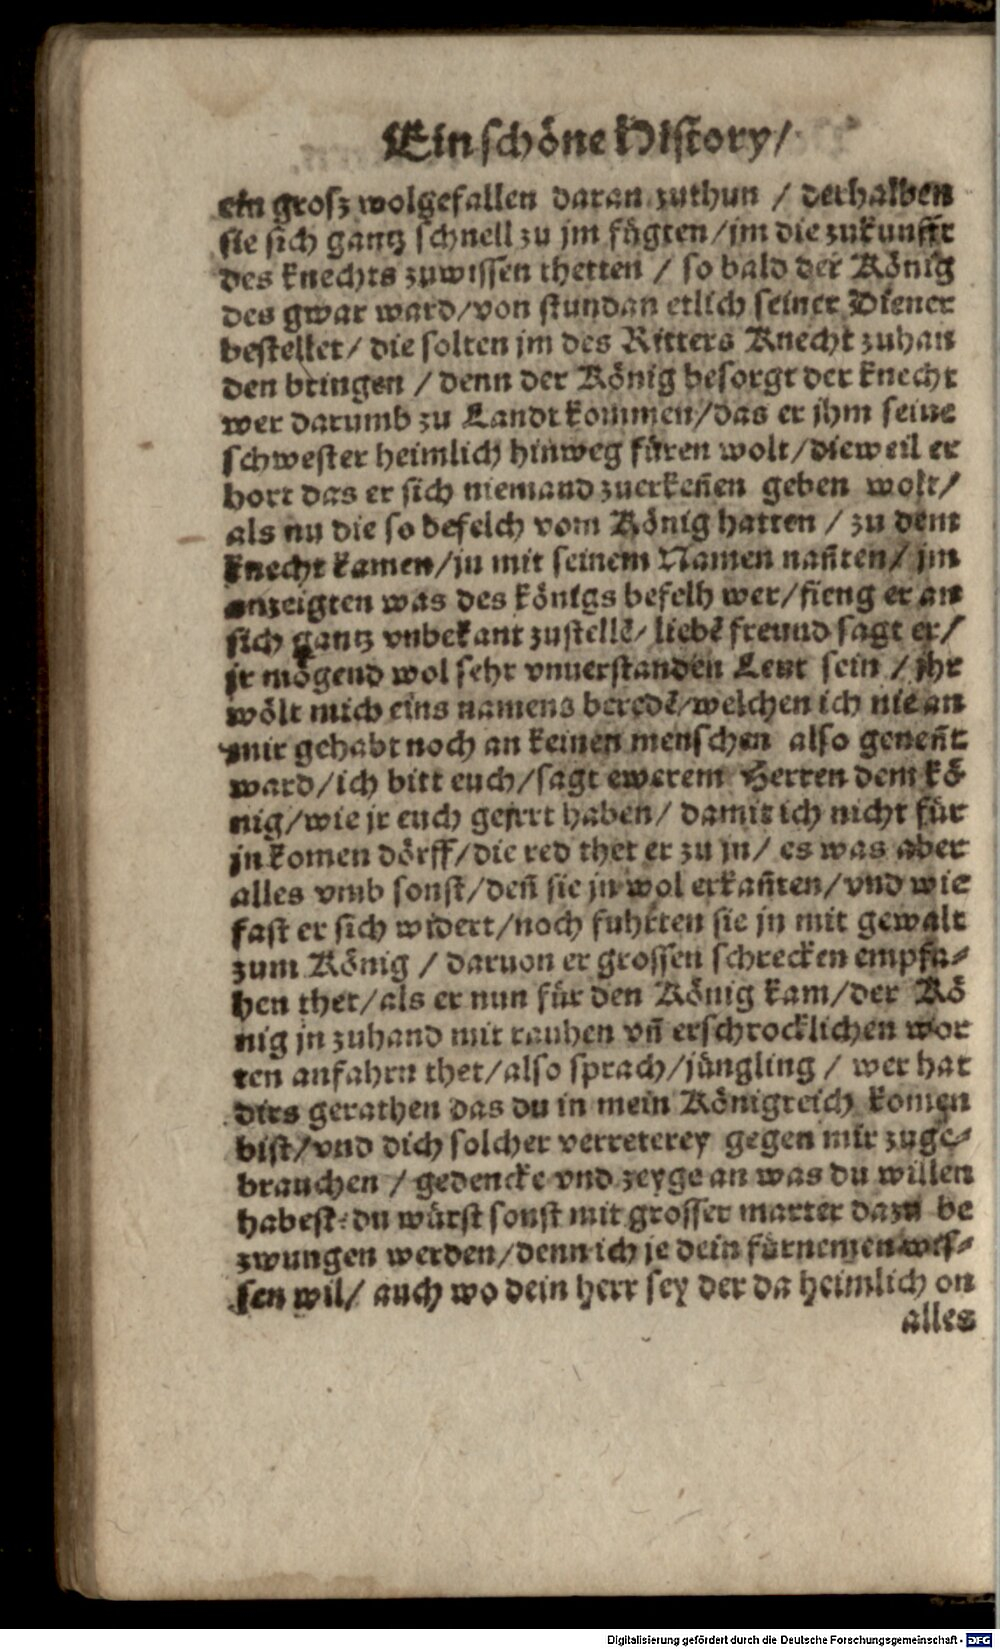 Ein schöne History/
ein grosz wolgefallen daran zuthun / derhalben
sie sich gantz schnell zu jm fügten/jm die zukunfft
des knechts zuwissen thetten / so bald der König
des gwar ward/von stundan etlich seiner Diener
bestellet/ die solten jm des Ritters Knecht zuhan
den bringen / denn der König besorgt der knecht
wer darumb zu Landt kommen/das er jhm seine
schwester heimlich hinweg füren wolt/dieweil er
hort das er sich niemand zuerkeñen geben wolt/
als nu die so befelch vom König hatten / zu dem
knecht kamen/jn mit seinem Namen nañten/ jm
anzeigten was des königs befelh wer/fieng er an
sich gantz vnbekant zustellẽ/ liebẽ freund sagt er/
jr mögend wol sehr vnuerstanden Leut sein / jhr
wölt mich eins namens beredẽ/welchen ich nie an
mir gehabt noch an keinen menschen also geneñt
ward/ich bitt euch/sagt ewerem Herren dem kö
nig/wie jr euch geirrt haben/ damit ich nicht für
jn komen dörff/die red thet er zu jn/ es was aber
alles vmb sonst/deñ sie jn wol erkañten/vnd wie
fast er sich widert/noch fuhrten sie jn mit gewalt
zum König / daruon er grossen schrecken empfa-
hen thet/als er nun für den König kam/der Kö
nig jn zuhand mit rauhen vñ erschrocklichen wor
ten anfahrn thet/also sprach/jüngling / wer hat
dirs gerathen das du in mein Königreich komen
bist/vnd dich solcher verreterey gegen mir zuge-
brauchen / gedencke vnd zeyge an was du willen
habest: du würst sonst mit grosser marter dazu be
zwungen werden/denn ich je dein fürnemen wis-
sen wil/ auch wo dein herr sey der da heimlich on
alles
Digitalisierung gefördert durch die Deutsche Forschungsgemeinschaft - DFG